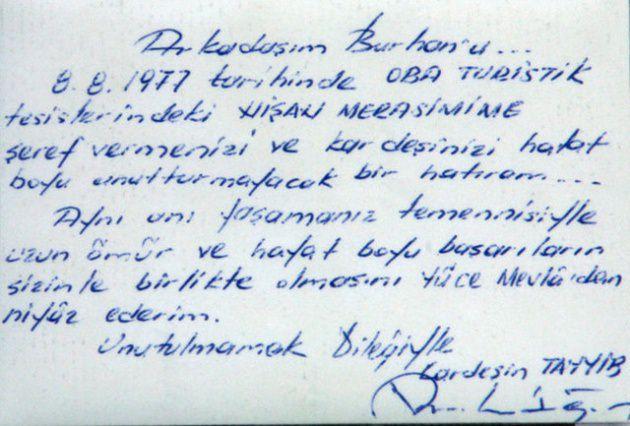 Arkadaşım Burhan'a...
8.8.1977 tarihinde OBA TURİSTİK
tesislerindeki NİŞAN MERASİMİME
şeref vermenizi ve kardeşinizi hayat
boyu unutturmayacak bir hatıram....
Aynı anı yaşamanız temennisiyle
uzun ömür ve hayat boyu başarıların
sizinle birlikte olmasını Yüce Mevlâ'dan
niyâz ederim.
Unutulmamak Dileğiyle
Kardeşin TAYYİB